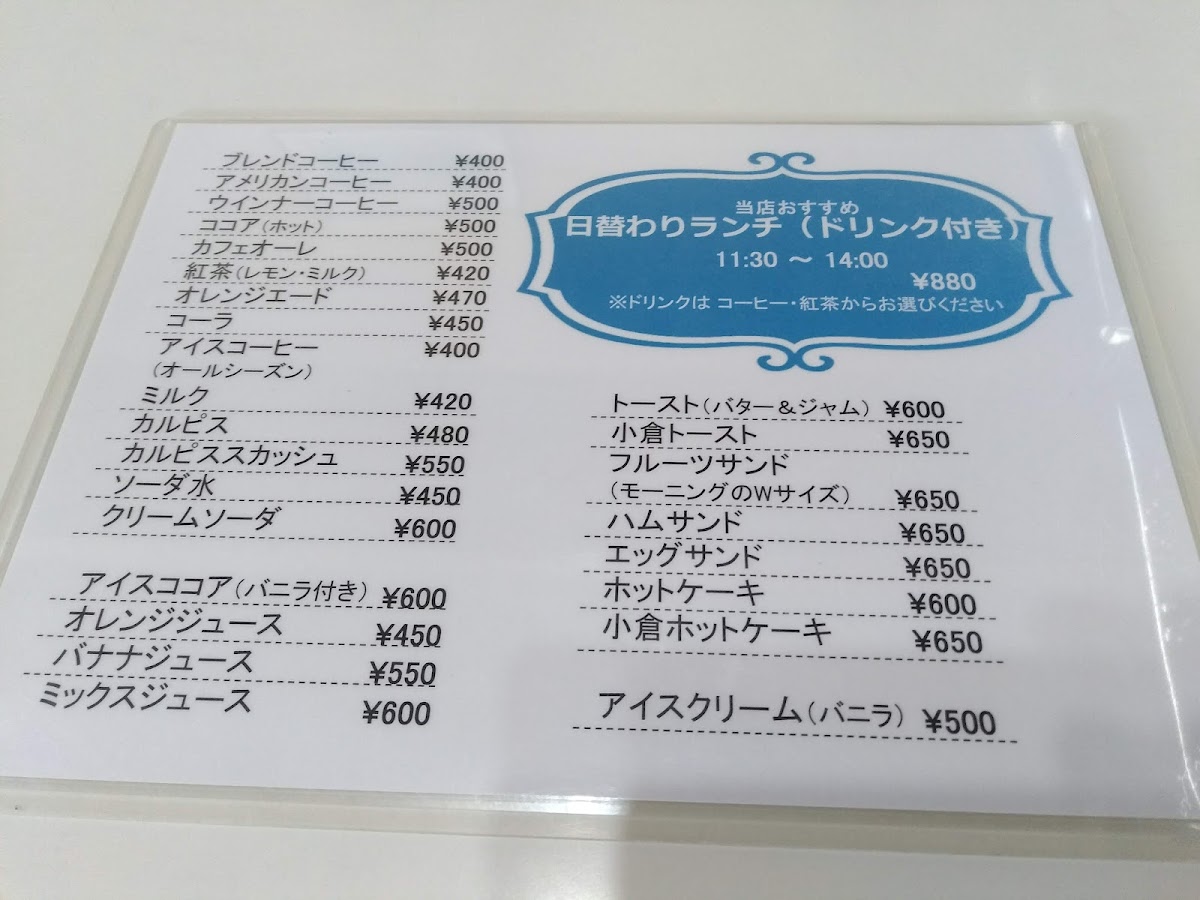 ブレンドコーヒー ¥400
アメリカンコーヒー ¥400
ウインナーコーヒー ¥500
ココア(ホット) ¥500
カフェオーレ ¥500
紅茶(レモン・ミルク) ¥420
オレンジエード ¥470
コーラ ¥450
アイスコーヒー ¥400
(オールシーズン)
ミルク ¥420
カルピス ¥480
カルピススカッシュ ¥550
ソーダ水 ¥450
クリームソーダ ¥600
アイスココア(バニラ付き) ¥600
オレンジジュース ¥450
バナナジュース ¥550
ミックスジュース ¥600
当店おすすめ
日替わりランチ(ドリンク付き)
11:30 ～ 14:00
¥880
※ドリンクは コーヒー・紅茶からお選びください
トースト(バター＆ジャム) ¥600
小倉トースト ¥650
フルーツサンド
(モーニングのWサイズ) ¥650
ハムサンド ¥650
エッグサンド ¥650
ホットケーキ ¥600
小倉ホットケーキ ¥650
アイスクリーム(バニラ) ¥500